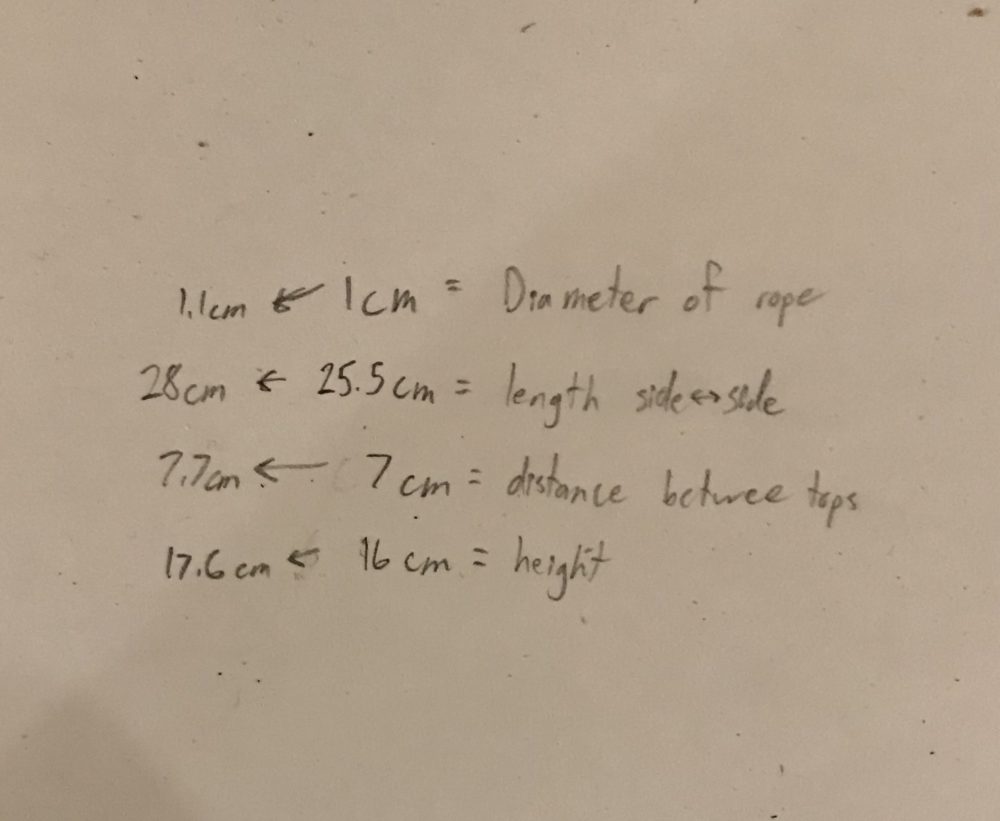 1.1cm ← 1cm = Diameter of rope
28cm ← 25.5cm = length side↔side
7.7cm ← 7cm = distance betwee tops
17.6cm ← 16cm = height